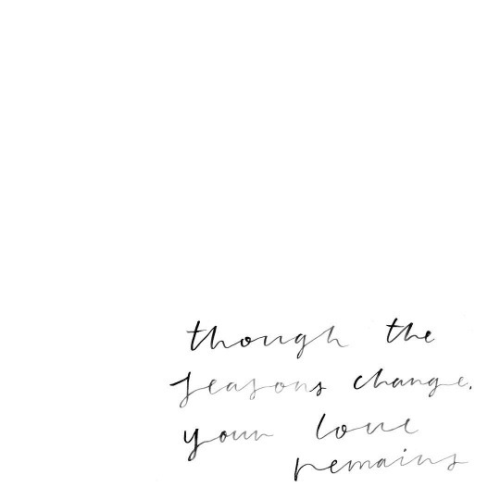 though the
seasons change,
your love
remains